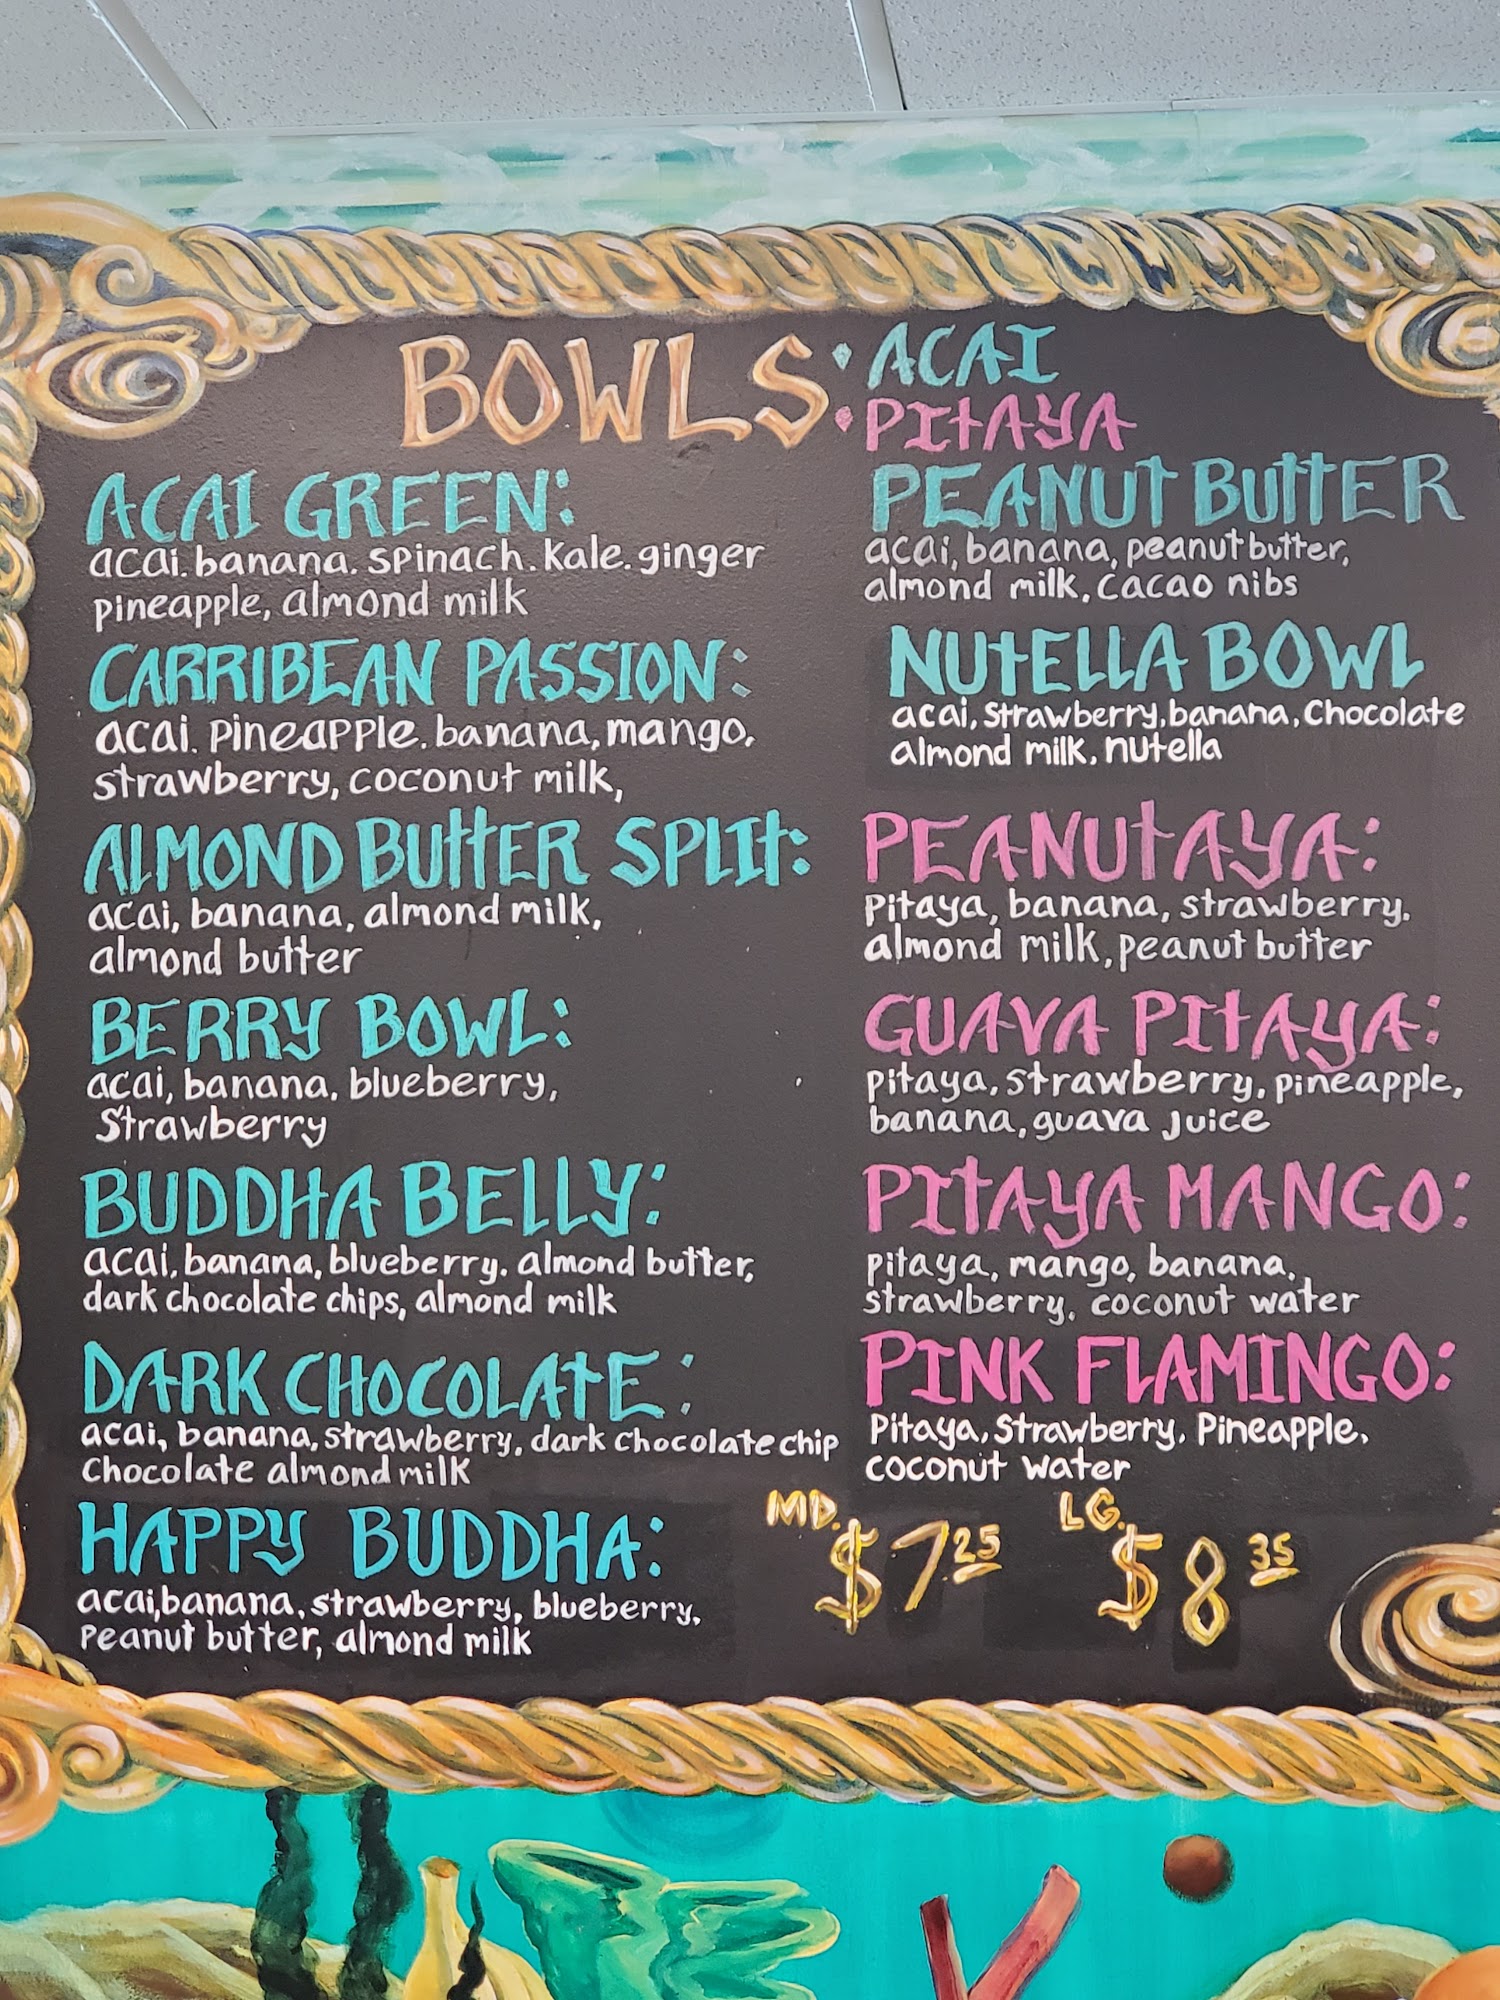 BOWLS:
ACAI
PITAYA
ACAI GREEN:
acai. banana. spinach. kale. ginger
pineapple, almond milk
CARRIBEAN PASSION:
acai. pineapple. banana, mango,
strawberry, coconut milk,
ALMOND BUTTER SPLIT:
acai, banana, almond milk,
almond butter
BERRY BOWL:
acai, banana, blueberry,
Strawberry
BUDDHA BELLY:
acai, banana, blueberry. almond butter,
dark chocolate chips, almond milk
DARK CHOCOLATE:
acai, banana, strawberry, dark chocolate chip
Chocolate almond milk
HAPPY BUDDHA:
acai, banana, strawberry, blueberry,
Peanut butter, almond milk
PEANUT BUTTER
acai, banana, peanut butter,
almond milk, cacao nibs
NUTELLA BOWL
acai, Strawberry, banana, Chocolate
almond milk, nutella
PEANUTAYA:
Pitaya, banana, strawberry,
almond milk, peanut butter
GUAVA PITAYA:
pitaya, strawberry, pineapple,
banana, guava juice
PITAYA MANGO:
pitaya, mango, banana,
strawberry, coconut water
PINK FLAMINGO:
Pitaya, Strawberry, Pineapple,
coconut water
MD. $7.25 LG. $8 35